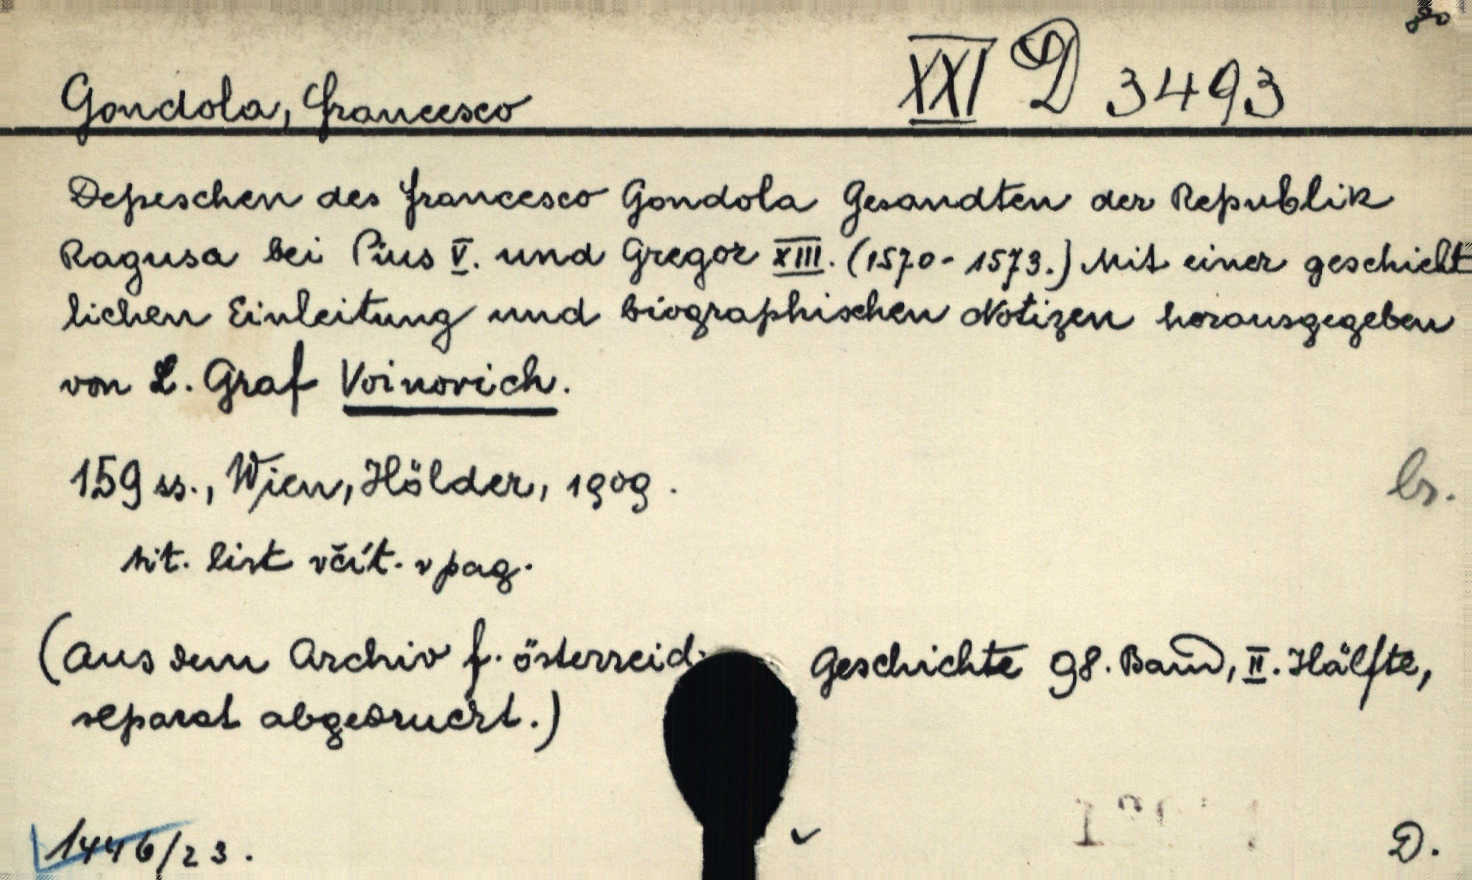 80
XXI D 3493
Gondola, Francesco
Depeschen des Francesco Gondola Gesandten der Republik
Ragusa bei Pius V. und Gregor XIII. (1570-1573.) Mit einer geschicht
lichen Einleitung und biographischen Notizen herausgegeben
von L. Graf Voinovich.
159 ss., Wien, Hölder, 1909.
br.
tit. list včít. v pag.
(Aus dem Archiv f. österreich. Geschichte 98. Band, II. Hälfte,
separat abgedruckt.)
1446/23.
D.